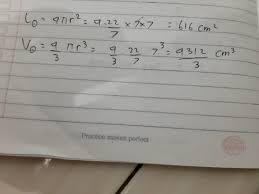 L₀ = 4πr² = 4.22/7 x 7 x 7 = 616 cm²
V₀ = 4/3 πr³ = 4/3 22/7 7³ = 4312/3 cm³
Practice makes perfect